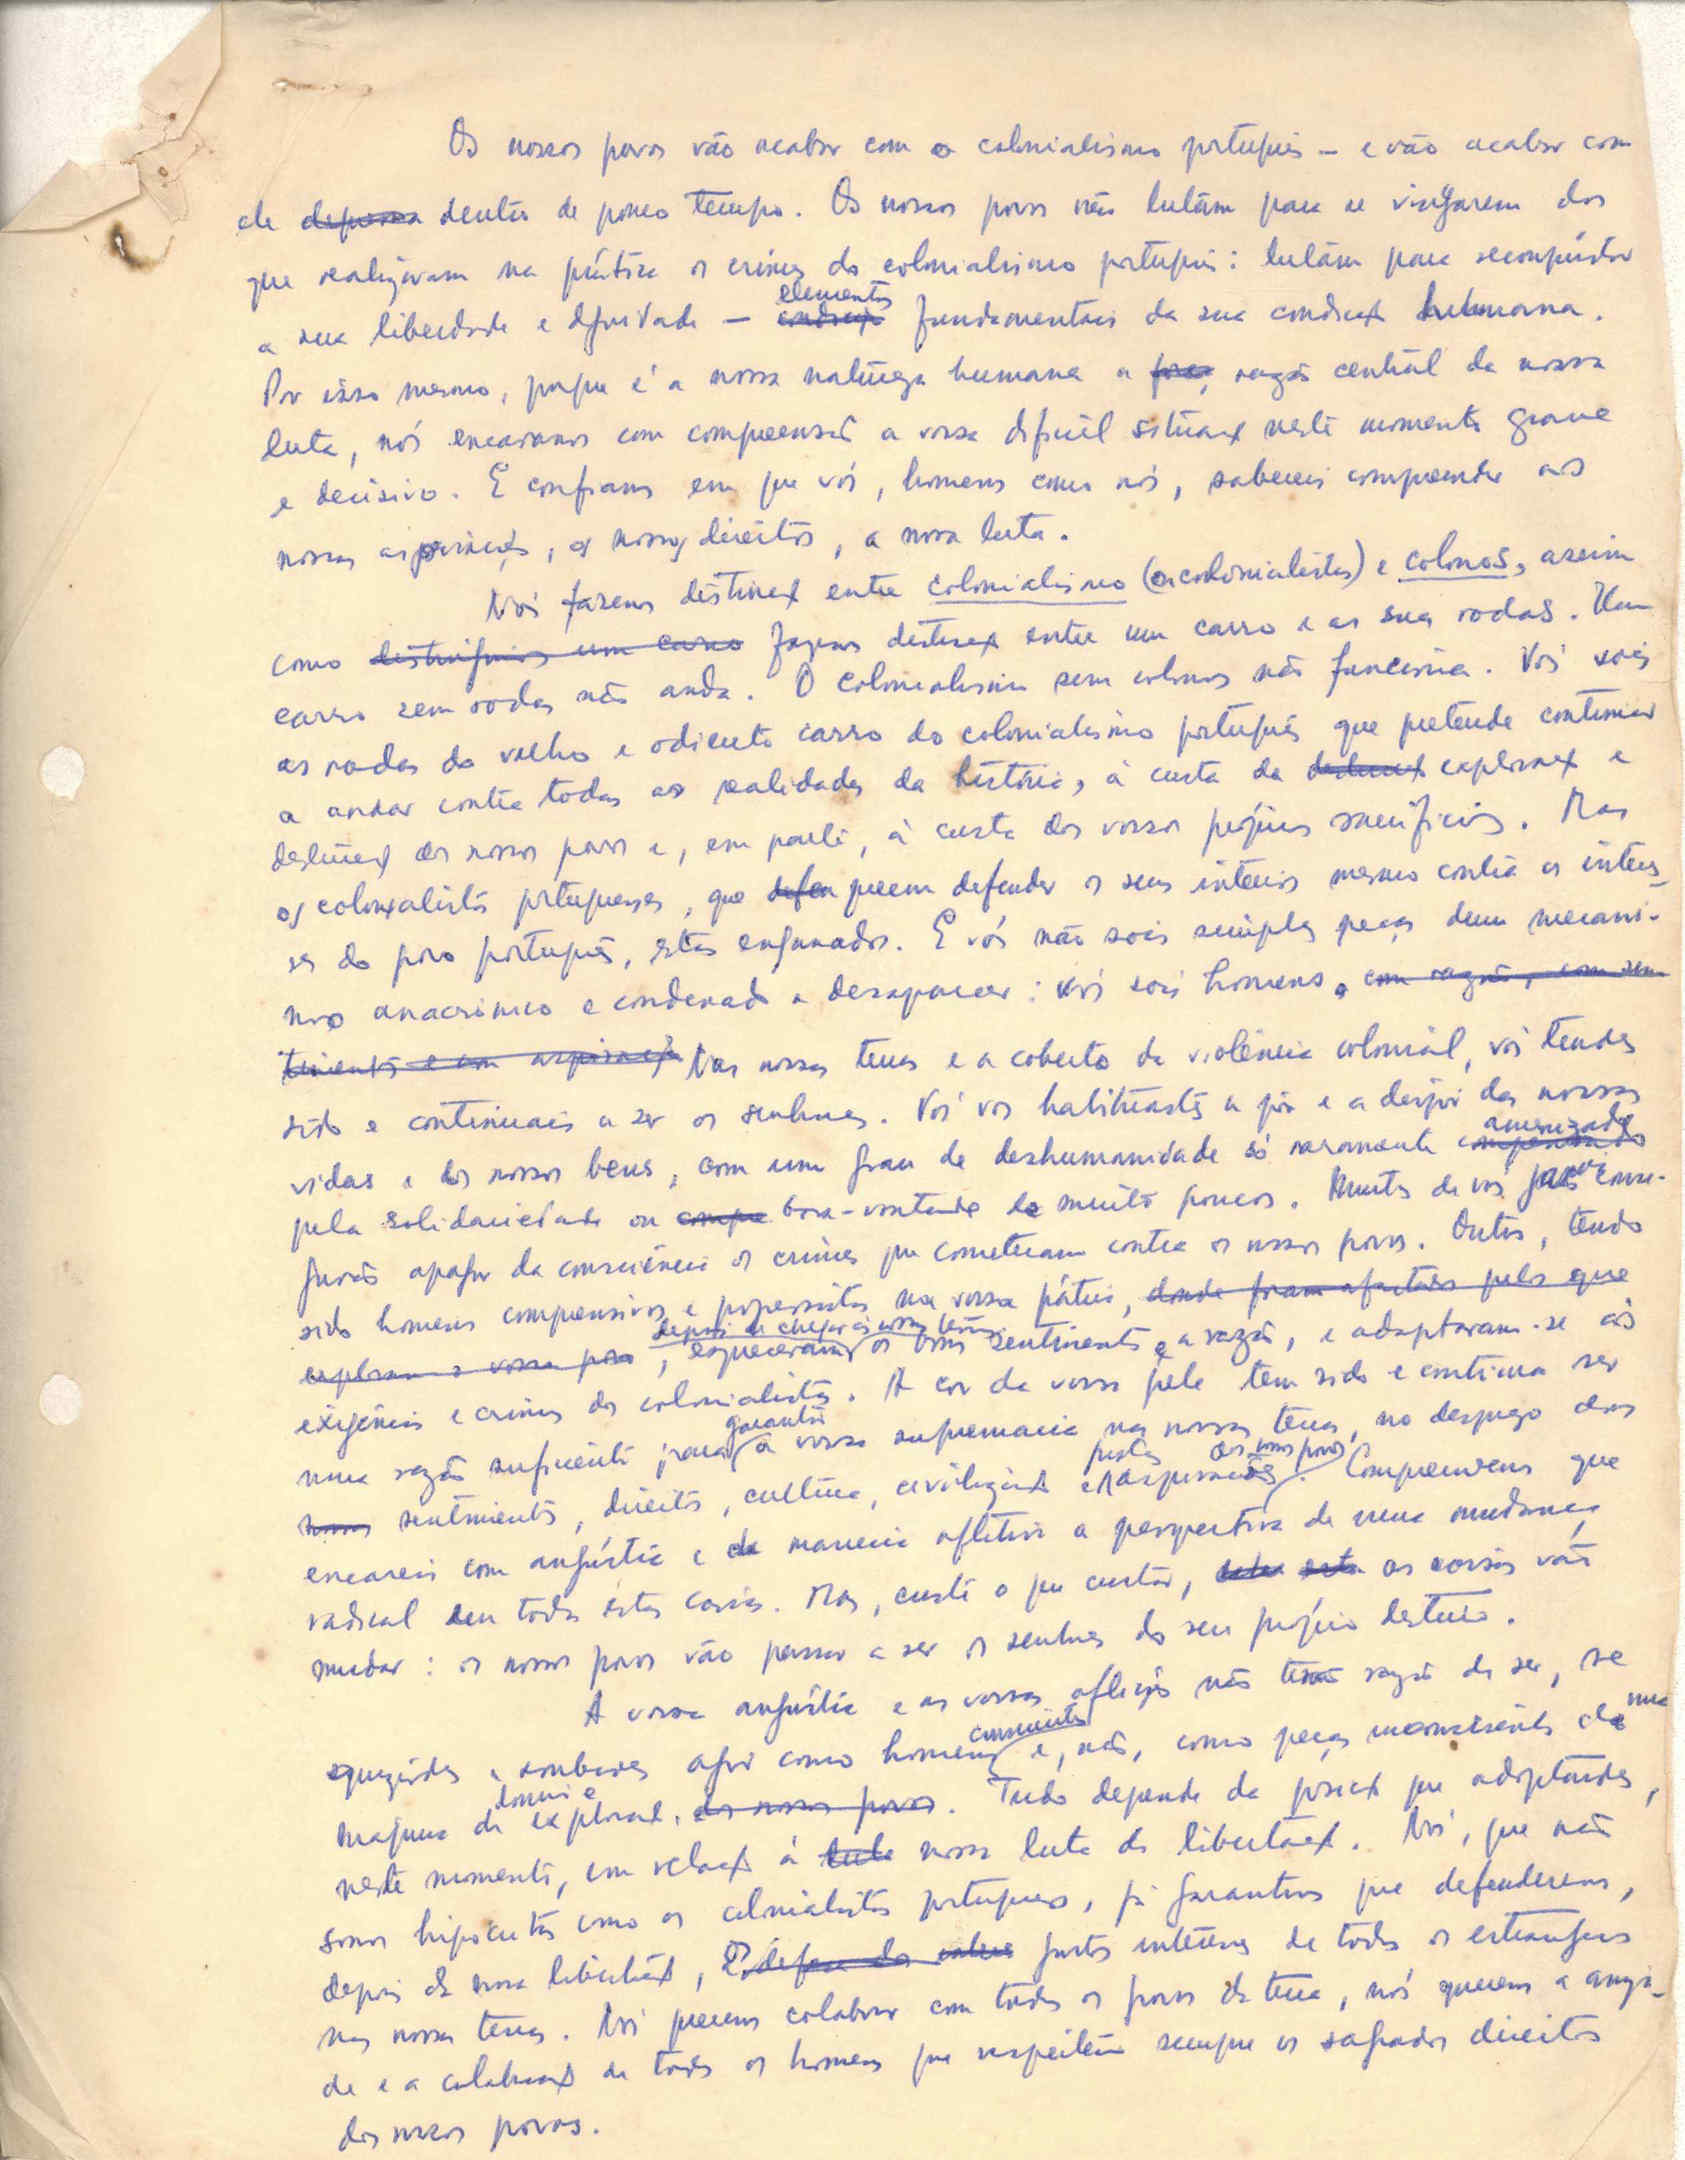 Os nossos povos vão acabar com o colonialismo português — e vão acabar com
ele depressa dentro de pouco tempo. Os nossos povos não lutam para se vingarem dos
que realizavam na prática os crimes do colonialismo português: lutam para reconquistar
elementos
a sua liberdade e dignidade — condição fundamentais da sua condição humana.
Por isso mesmo, porque é a nossa natureza humana a razão central da nossa
luta, nós encaramos com compreensão a vossa difícil situação neste momento grave
e decisivo. E confiamos em que vós, homens como nós, sabereis compreender as
nossas aspirações, os nossos direitos, a nossa luta.
Nós fazemos distinção entre colonialismo (ou colonialistas) e colonos, assim
como distinguimos um carro fazemos distinção entre um carro e as suas rodas. Um
carro sem rodas não anda. O colonialismo sem colonos não funciona. Vós sois
as rodas do velho e odiento carro do colonialismo português que pretende continuar
a andar contra todas as realidades da história, à custa da exploração e
desgraça dos nossos povos e, em parte, à custa dos vossos próprios sacrifícios. Mas
os colonialistas portugueses, que defen querem defender os seus interesses mesmo contra os interes-
ses do povo português, estão enganados. E vós não sois simples peças dum mecanis-
mo anacrónico e condenado a desaparecer: vós sois homens, com razão, com sen
timentos e com aspirações Nas nossas terras e a coberto da violência colonial, vós tendes
sido e continuais a ser os senhores. Vós vos habituastes a pôr e a dispôr das nossas
amenizado
vidas e dos nossos bens, com um grau de deshumanidade só raramente compensado
pela solidariedade ou compr boa-vontade de muito poucos. Muitos de vós conse-
guirão apagar da consciência os crimes que cometeram contra os nossos povos. Outros, tendo
sido homens compreensivos e progressistas na vossa pátria, donde foram afastados pelos que
depois de chegar às nossas terras
exploram o vosso povo, esqueceram os bons sentimentos e a razão, e adaptaram-se às
exigências e crimes dos colonialistas. A cor da vossa pele tem sido e continua a ser
garantir
uma razão suficiente para a vossa supremacia nas nossas terras, no desprezo dos
justas dos nossos povos
nossos sentimentos, direitos, cultura, civilização e aspirações. Compreendemos que
encareis com angústia e de maneira aflitiva a perspectiva de uma mudança
radical em todas estas coisas. Mas, custe o que custar, as coisas vão
mudar: os nossos povos vão passar a ser os senhores do seu próprio destino.
A vossa angústia e as vossas aflições não terão razão de ser, se
conscientes numa
quizerdes e souberdes agir como homens e, não, como peças inconscientes da
domínio e
máquina de exploração dos nossos povos. Tudo depende da posição que adoptardes,
neste momento, em relação à luta nossa luta de libertação. Nós, que não
somos hipócritas como os colonialistas portugueses, já garantimos que defenderemos,
depois da nossa libertação, justos interesses de todos os estrangeiros
nas nossas terras. Nós queremos colaborar com todos os povos da terra, nós queremos a amiza-
de e a colaboração de todos os homens que respeitem sempre os sagrados direitos
dos nossos povos.